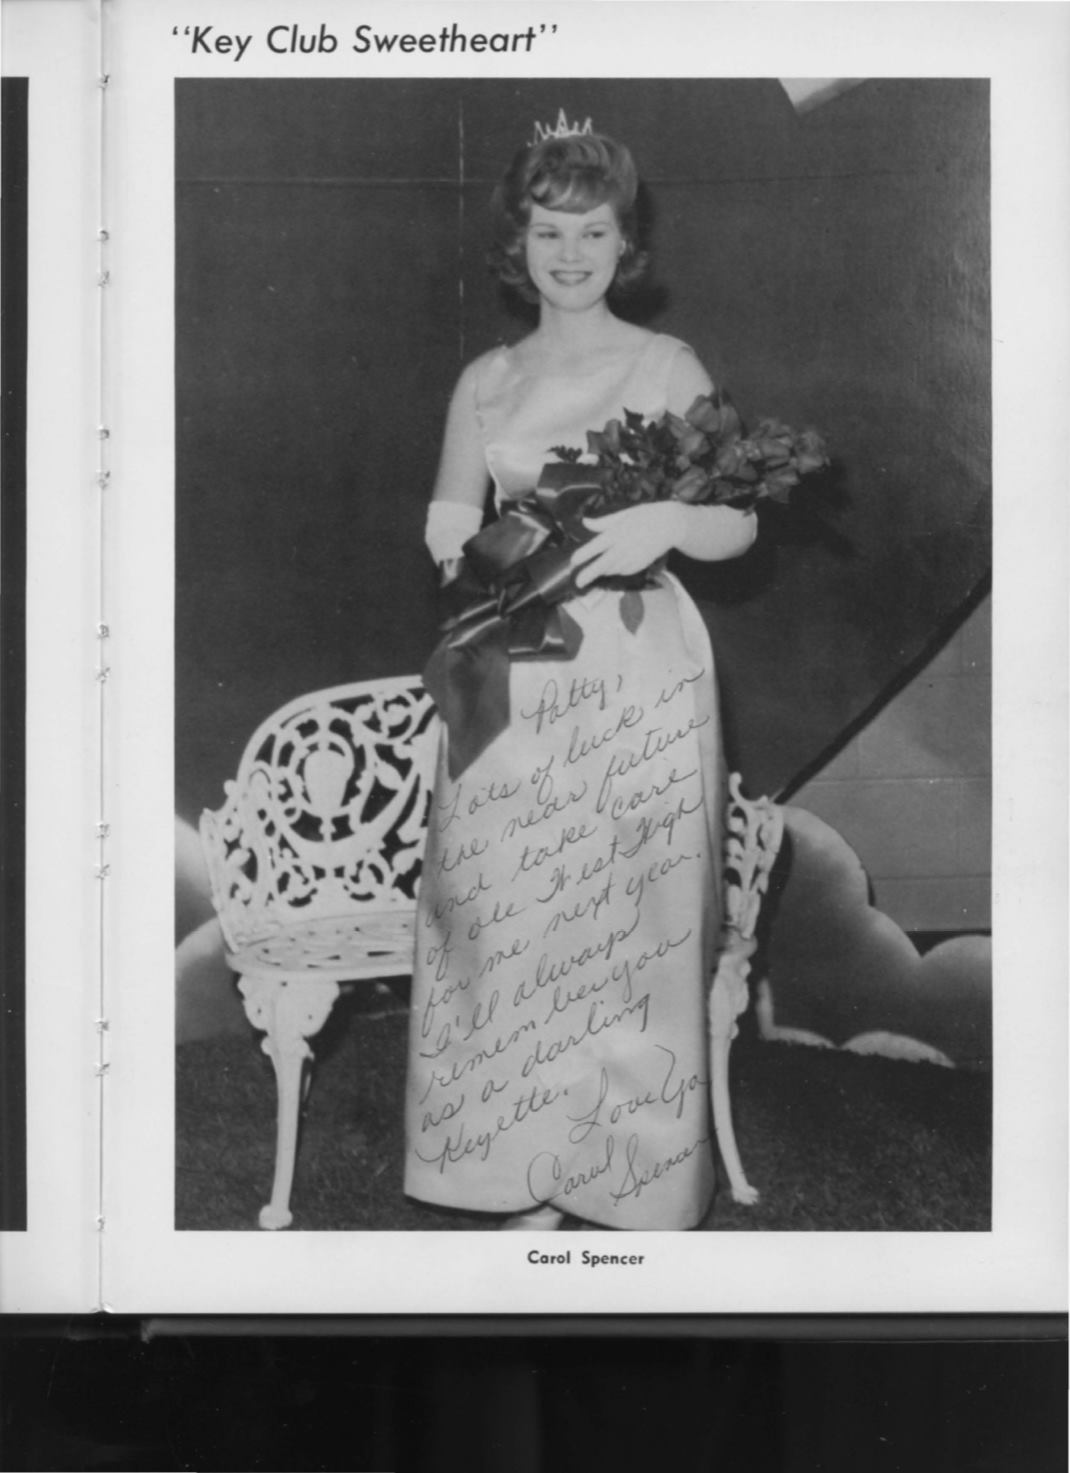 "Key Club Sweetheart"
Patty,
Lots of luck in
the near future
and take care
of ole West High
for me next year.
I'll always
remember you
as a darling
Keyette.
Love Ya
Carol
Spencer
Carol Spencer